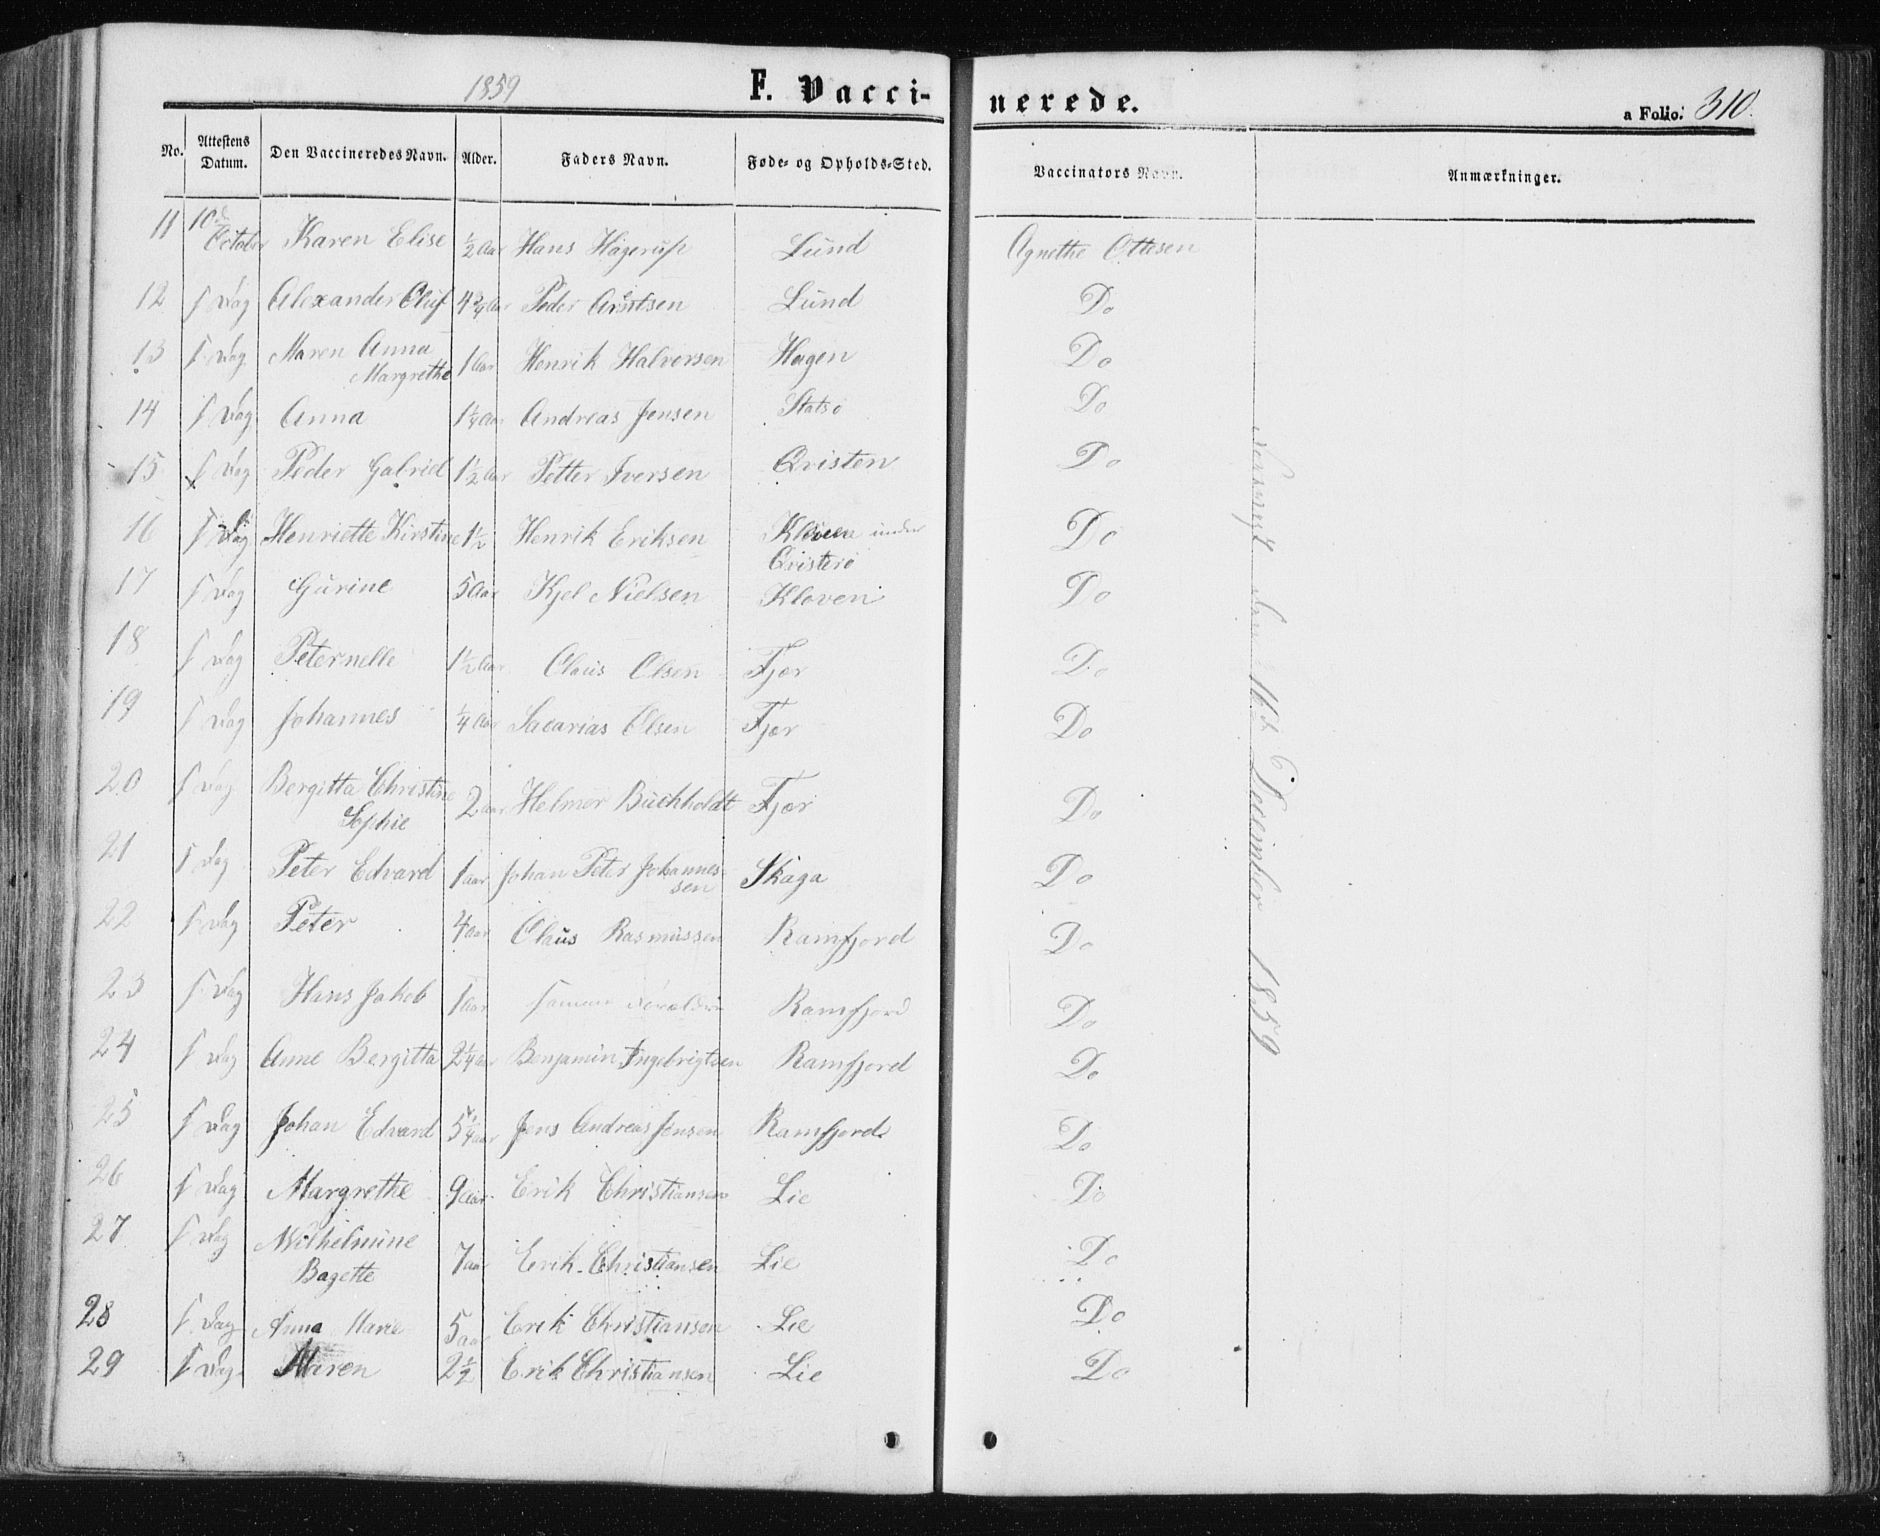 1859
F. Vacci-
nerede.
a Folio. 310.
No. Attestens Datum. Den Vaccineredes Navn. Alder. Faders Navn. Føde- og Opholds-Sted. Vaccinators Navn. Anmærkninger.
11 10de October Karen Elise ½ Aar Hans Hagerup Lund Agnethe Ottesen
12 s Dag Alexander Oluf 4¾ Aar Peder Arntsen Lund Do
13 s Dag Maren Anna Margrethe 1 Aar Henrik Halvorsen Hagen Do
14 s Dag Anna 1¼ Aar Andreas Jensen Do
15 s Dag Peder Gabriel 1½ Aar Petter Iversen Qvisten Do
16 s Dag Henriette Kirstine 1½ Henrik Eriksen Kløven under Qvisterø Do
17 s Dag Gurine 5 Aar Kjel Nielsen Kløven Do
18 s Dag Peternelle 1½ Aar Claus Olsen Fjær Do
19 s Dag Johannes ¼ Aar Sacarias Olsen Fjær Do
20 s Dag Bergitta Christine Sophie 2 aar Helmer Buchholdt Fjær Do
21 s Dag Peter Edvard 1 aar Johan Peter Johannes-
sen Skaga Do
22 s Dag Peter 4 aar Claus Rasmussen Ramfjord Do
23 s Dag Hans Jakob 1 aar Ramfjord Do
24 s Dag Anne Bergitta 2¼ aar Benjamin Ingebrigtsen Ramfjord Do
25 s Dag Johan Edvard 5¼ aar Jens Andreas Jensen Ramfjord Do
26 s Dag Margrethe 9 aar Erik Christiansen Lie Do
27 s Dag Wilhelmine Bagette 7 aar Erik Christiansen Lie Do
28 s Dag Anna Marie 5 aar Erik Christiansen Lie Do
29 s Dag Maren 2½ Erik Christiansen Lie Do
den 16de December 1859